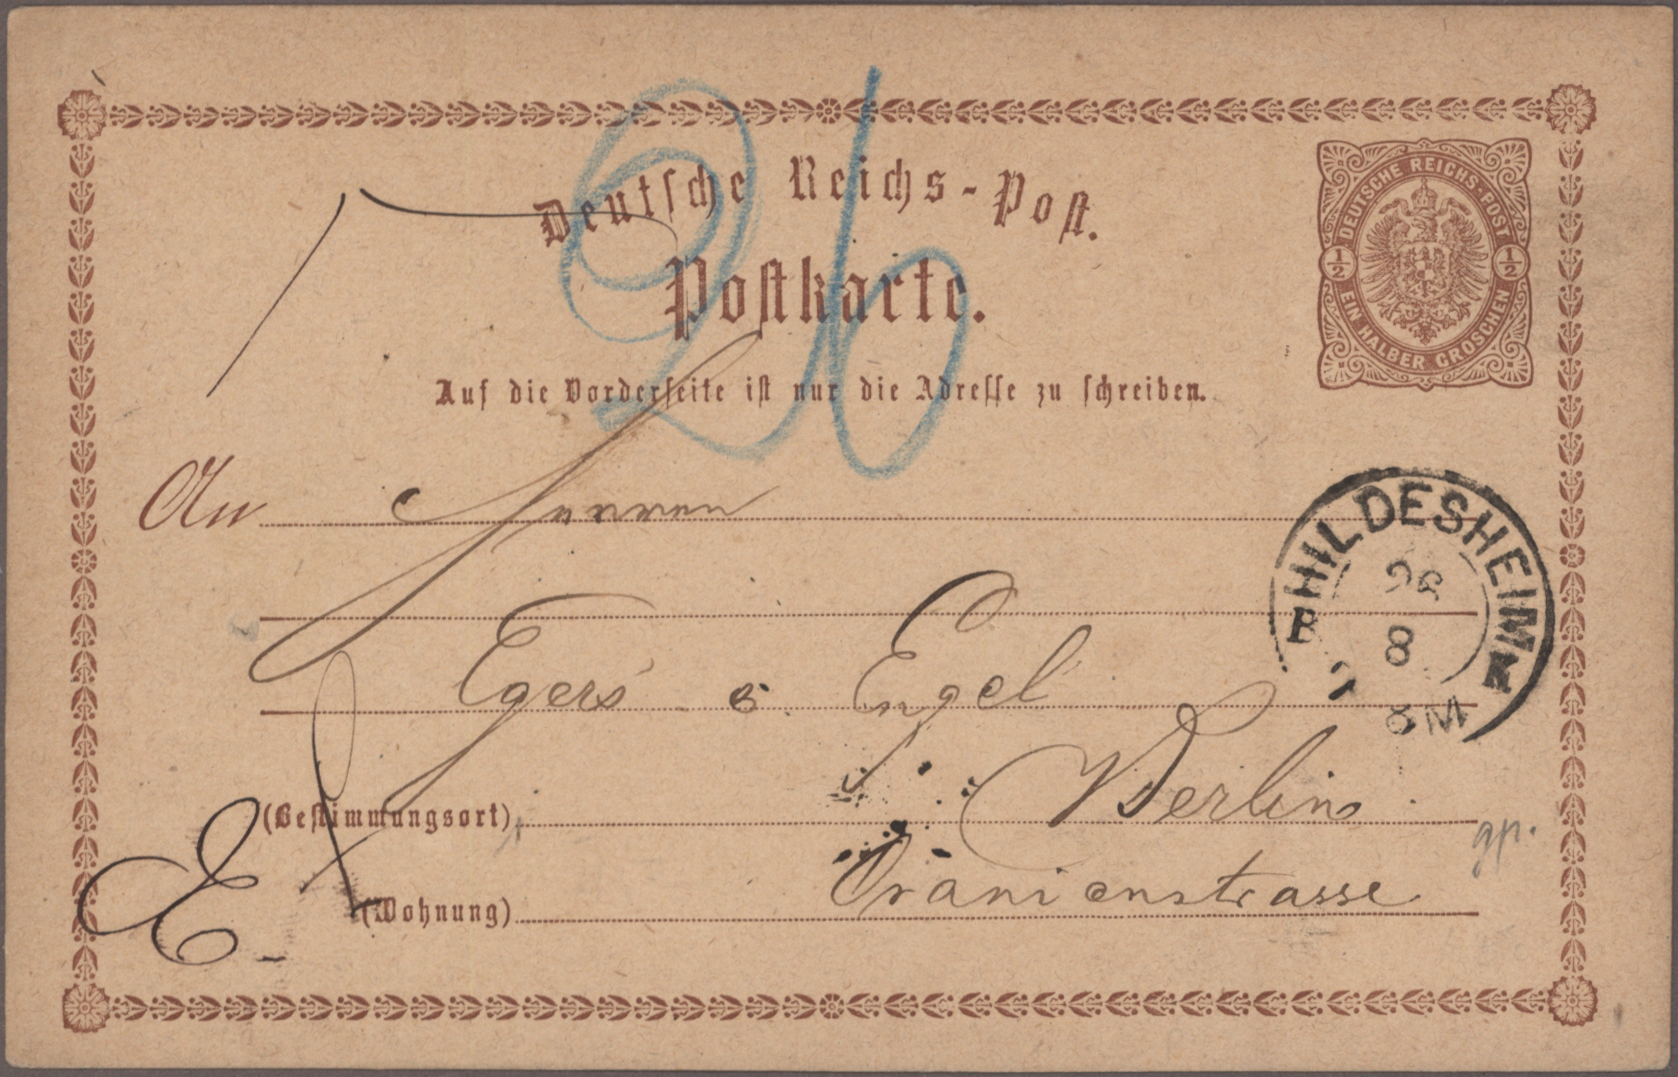 Deutsche Reichs-Post.
Postkarte.
Auf die Vorderseite ist nur die Adresse zu schreiben.
DEUTSCHE REICHS-POST
1/2 1/2
EIN HALBER GROSCHEN
26
An Herren
Egers & Engel
Berlin
(Bestimmungsort)
Oranienstrasse
(Wohnung)
E.
gp.
HILDESHEIM
26
8
8 M